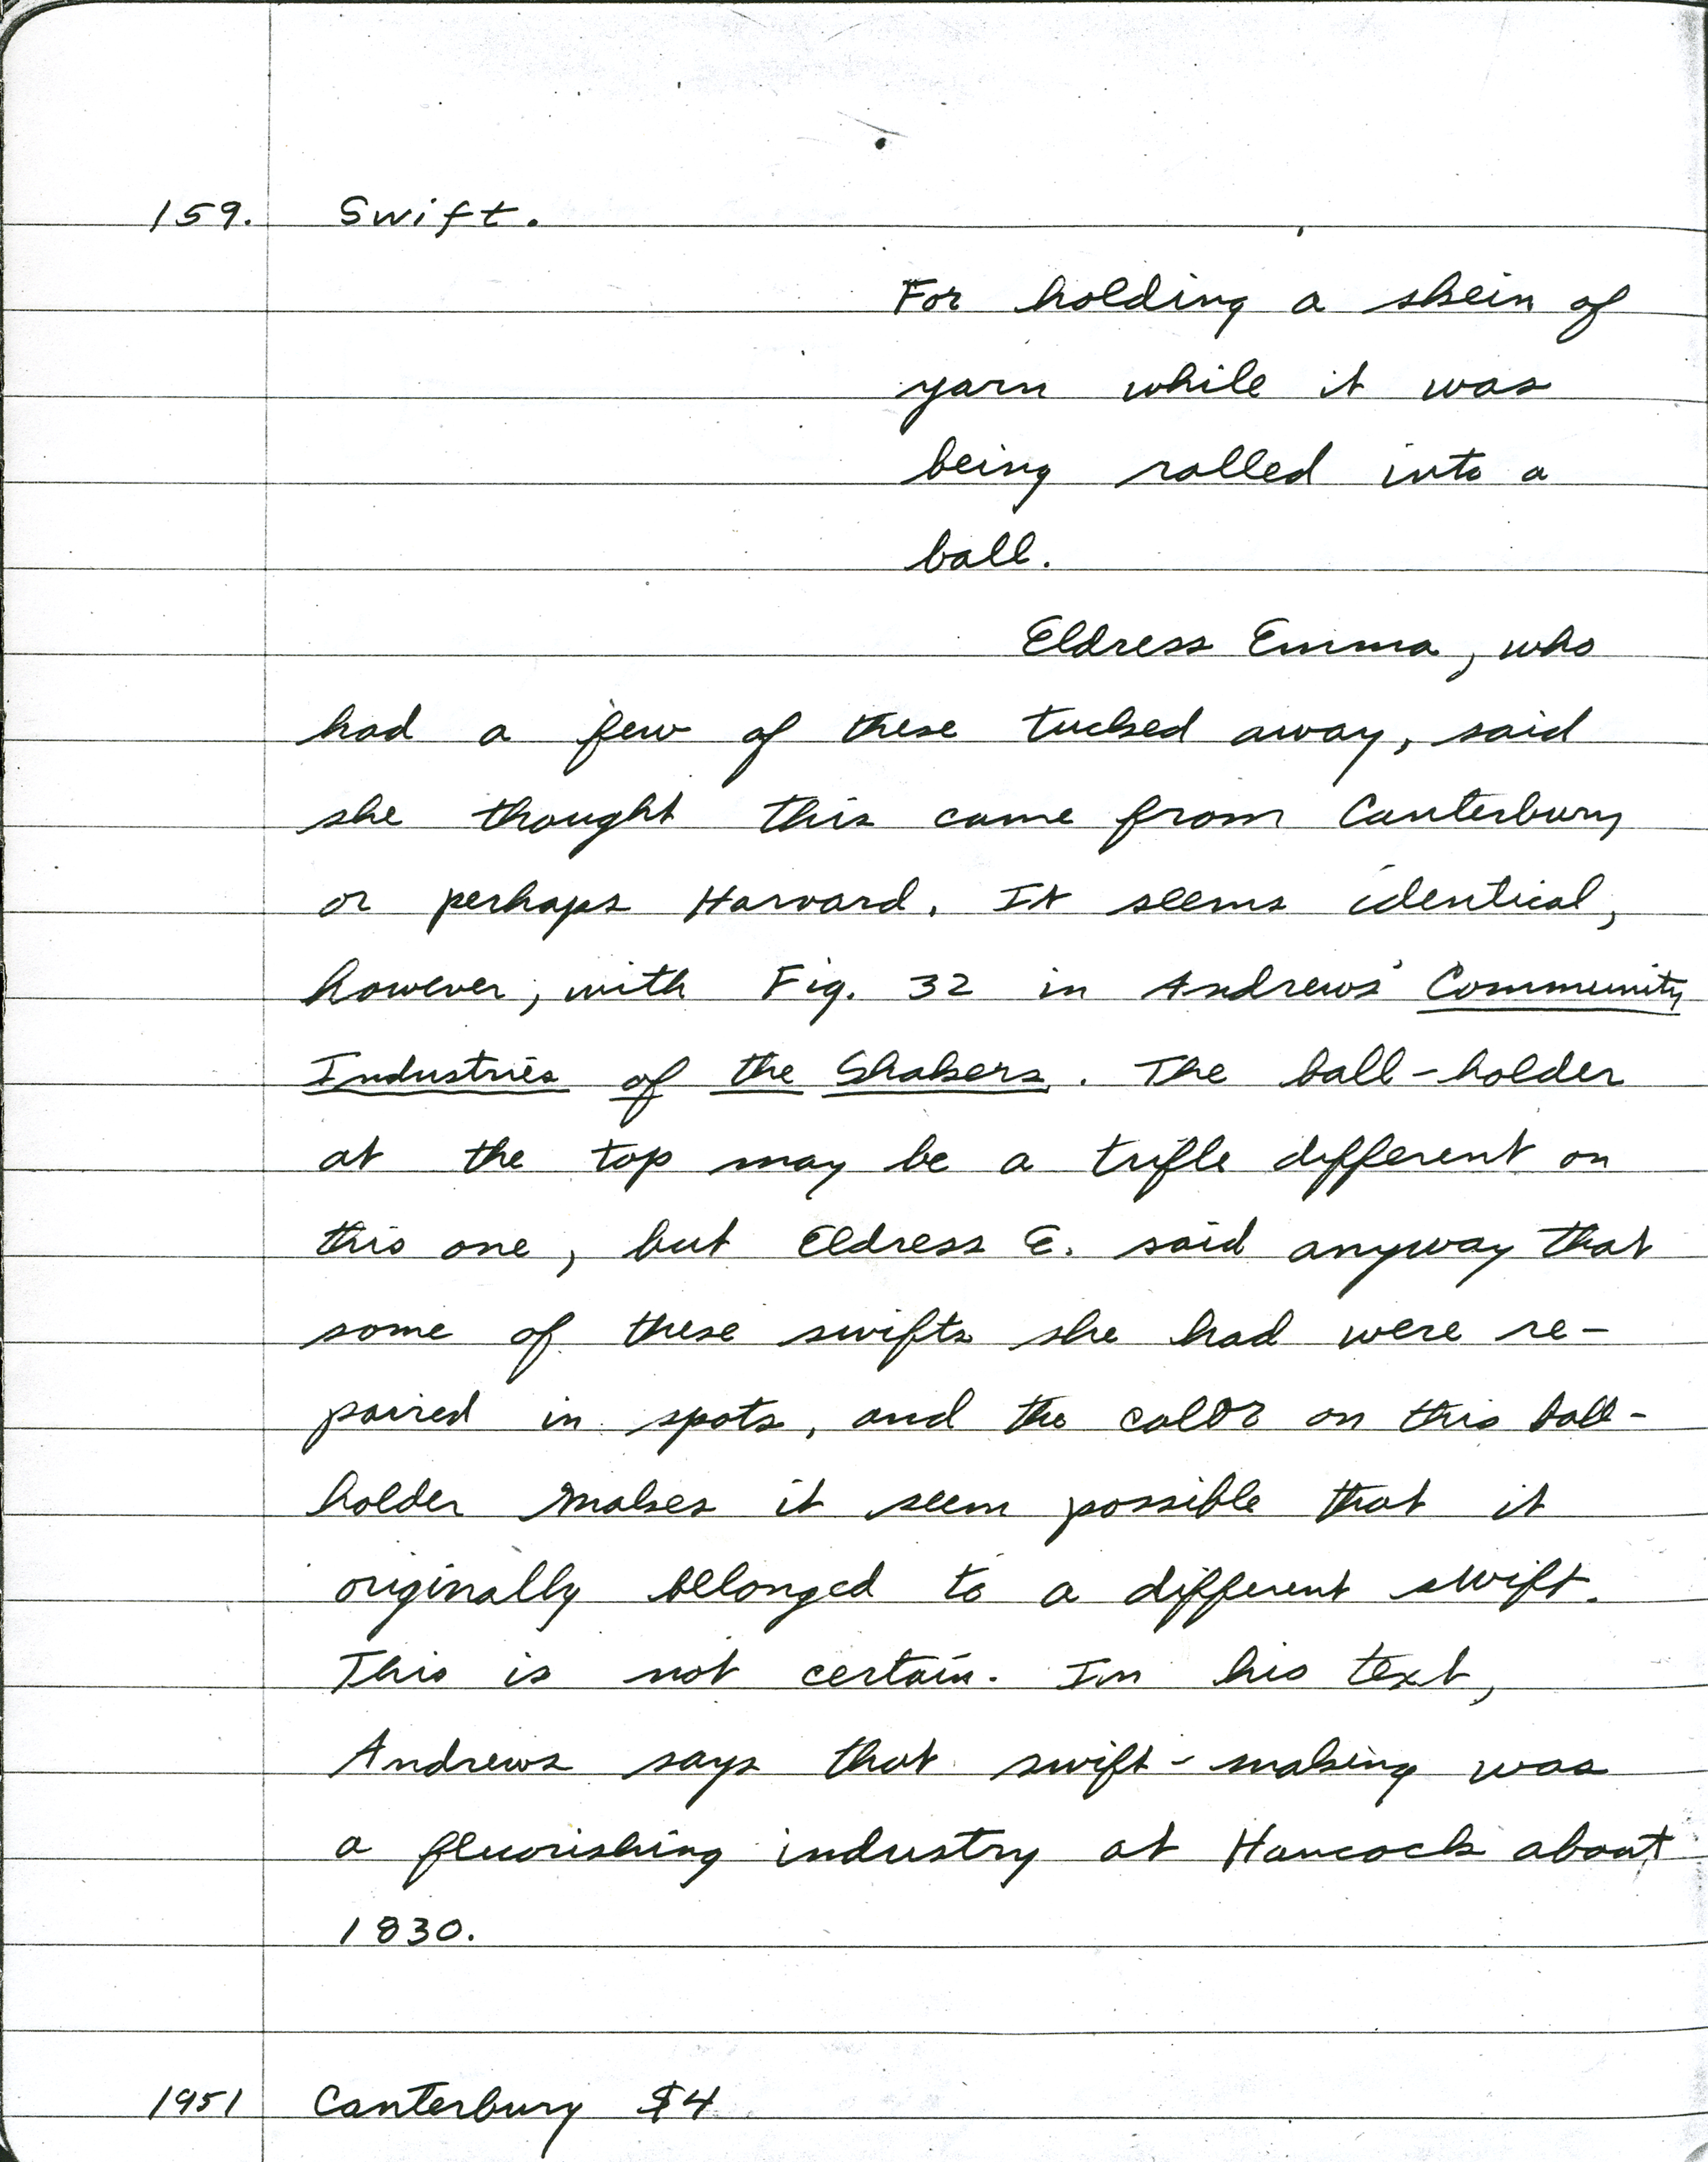 159. Swift.
For holding a skein of
yarn while it was
being rolled into a
ball.
Eldress Emma, who
had a few of these tucked away, said
she thought this came from Canterbury
or perhaps Harvard. It seems identical,
however, with Fig. 32 in Andrews' Community
Industries of the Shakers. The ball-holder
at the top may be a trifle different on
this one, but Eldress E. said anyway that
some of these swifts she had were re-
paired in spots, and the color on this ball-
holder makes it seem possible that it
originally belonged to a different swift.
This is not certain. In his text,
Andrews says that swift-making was
a flourishing industry at Hancock about
1830.
1951 Canterbury $4